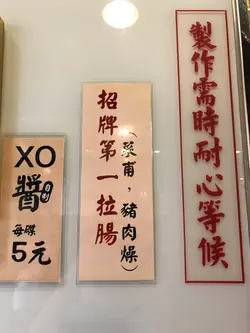 製作需時耐心等候
招牌第一拉腸
(菜甫，豬肉燥)
XO
醬
自制
每碟
5元